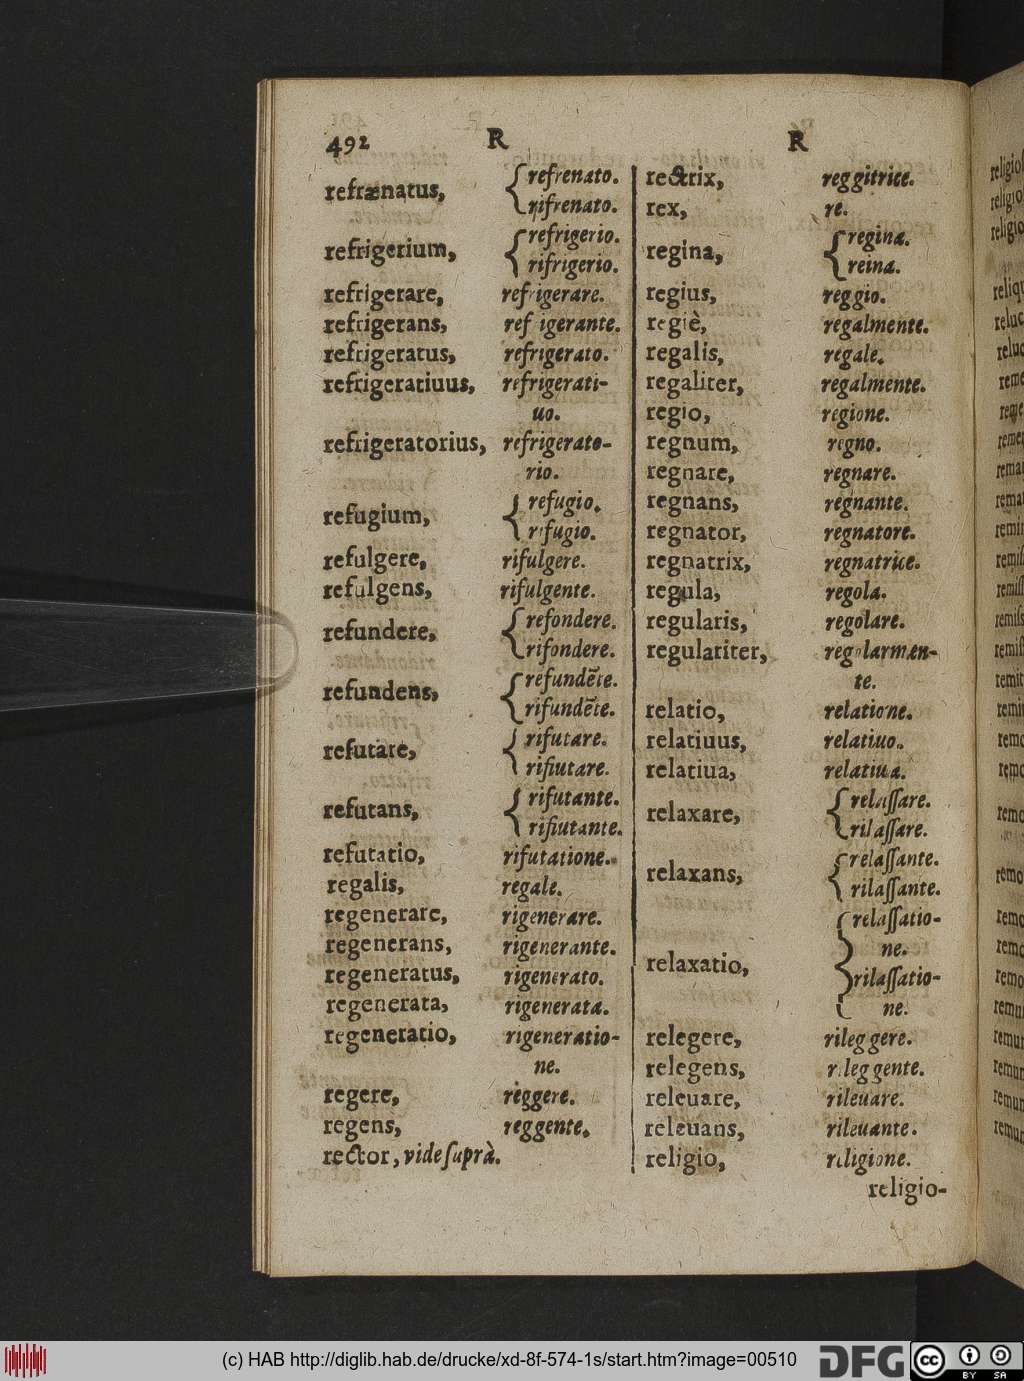 492 R R
refrænatus, refrenato.
rifrenato.
refrigerium, refrigerio.
rifrigerio.
refrigerare, refrigerare.
refrigerans, refrigerante.
refrigeratus, refrigerato.
refrigeratiuus, refrigerati-
uo.
refrigeratorius, refrigerato-
rio.
refugium, refugio.
rifugio.
refulgere, rifulgere.
refulgens, rifulgente.
refundere, refondere.
rifondere.
refundens, refundẽte.
rifundẽte.
refutare, rifutare.
rifiutare.
refutans, rifutante.
rifiutante.
refutatio, rifutatione.
regalis, regale.
regenerare, rigenerare.
regenerans, rigenerante.
regeneratus, rigenerato.
regenerata, rigenerata.
regeneratio, rigeneratio-
ne.
regere, reggere.
regens, reggente.
rector, vide suprà.
rectrix, reggitrice.
rex, re.
regina, regina.
reina.
regius, reggio.
regiè, regalmente.
regalis, regale.
regaliter, regalmente.
regio, regione.
regnum, regno.
regnare, regnare.
regnans, regnante.
regnator, regnatore.
regnatrix, regnatrice.
regula, regola.
regularis, regolare.
regulariter, regolarmen-
te.
relatio, relatione.
relatiuus, relatiuo.
relatiua, relatiua.
relaxare, relaſſare.
rilaſſare.
relaxans, relaſſante.
rilaſſante.
relaxatio, relaſſatio-
ne.
rilaſſatio-
ne.
relegere, rileggere.
relegens, rileggente.
releuare, rileuare.
releuans, rileuante.
religio, religione.
religio-
(c) HAB http://diglib.hab.de/drucke/xd-8f-574-1s/start.htm?image=00510
DFG
cc BY SA